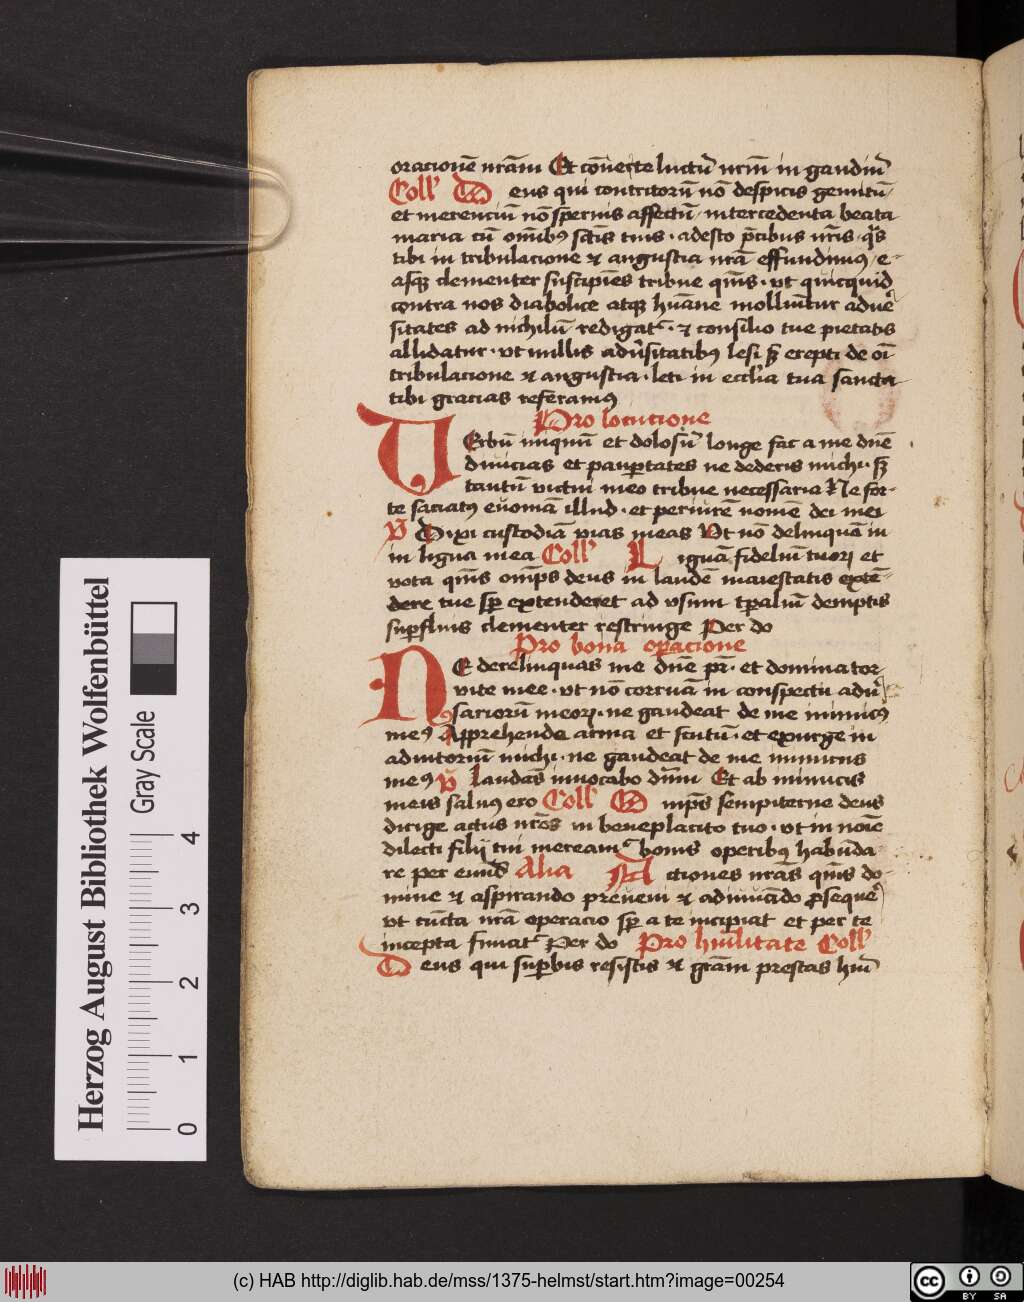 oracionē nr̄am Et cōuerte luctū nrm̄ in gaudiū
Coll' Deus qui contritorū nō despicis gemitū
et merenciū nō spernis affectū · intercedente beata
maria cū om̄ibꝰ sctīs tuis · adesto p̄cibus nr̄is · q̄s
tibi in tribulacione et angustia nr̄a effundimꝰ / e-
asqꝫ clementer suscipiēs tribue qm̄s · vt quicquid
contra nos diabolice atqꝫ hūane moliūtur aduer
sitates ad nichilū redigat᷑ · et consilio tue pietatis
allidatur · vt nullis adūsitatibꝰ lesi sꝫ erepti de oī
tribulacione et angustia · leti in ecclīa tua sancta
tibi gracias referamꝰ
Pro locucione
VErbū iniquū et dolosū longe fac a me dn̄e
diuicias et paup̄tates ne dederis michi · sꝫ
tantū victui meo tribue necessaria Ne for-
te saciatꝰ euomā illud · et periurē nomē dei mei
V̄ Dixi custodiā vias meas Vt nō delinquā in
in ligua mea Coll' Liguā fideliū tuoꝝ et
vota qm̄s om̄ps deus in laudē maiestatis extē-
dere tue sp̄ extenderet ad vsum tp̄aliū demptis
sup̄fluis clementer restringe Per do
Pro bona op̄acione
NE derelinquas me dn̄e pr̄ · et dominator
vite mee · vt nō corruā in conspectu adū
sariorū meoꝝ · ne gaudeat de me inimicꝰ
meꝰ Apprehende arma et scutū · et exurge in
adiutoriū michi · ne gaudeat de me inimicus
meꝰ V̄ Laudās inuocabo dn̄m Et ab inimicis
meis saluꝰ ero Coll' Om̄ps sempiterne deus
dirige actus nr̄os in beneplacito tuo · vt in noīe
dilecti filij tui meream᷑ bonis operibꝰ habūda-
re per eund̄ Alia Actiones nr̄as qm̄s do-
mine et aspirando preueni et adiuuādo ꝓsequere
vt cūcta nr̄a operacio sp̄ a te incipiat et per te
incepta finiat᷑ Per do Pro hūilitate Coll'
Deus qui sup̄bis resistis et grām prestas hūi
Herzog August Bibliothek Wolfenbüttel
Gray Scale
0 1 2 3 4
(c) HAB http://diglib.hab.de/mss/1375-helmst/start.htm?image=00254
cc BY SA